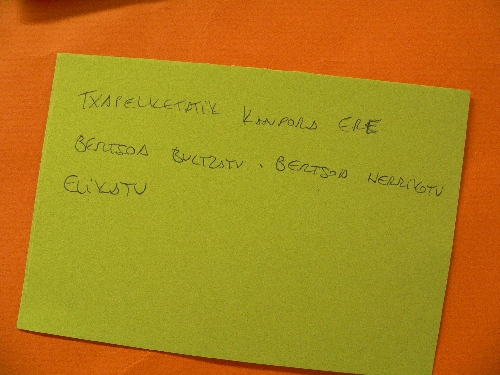 TXAPELKETATIK KANPORA ERE
BERTSOA BULTZATU. BERTSOA HERRIKOTU
ELIKATU